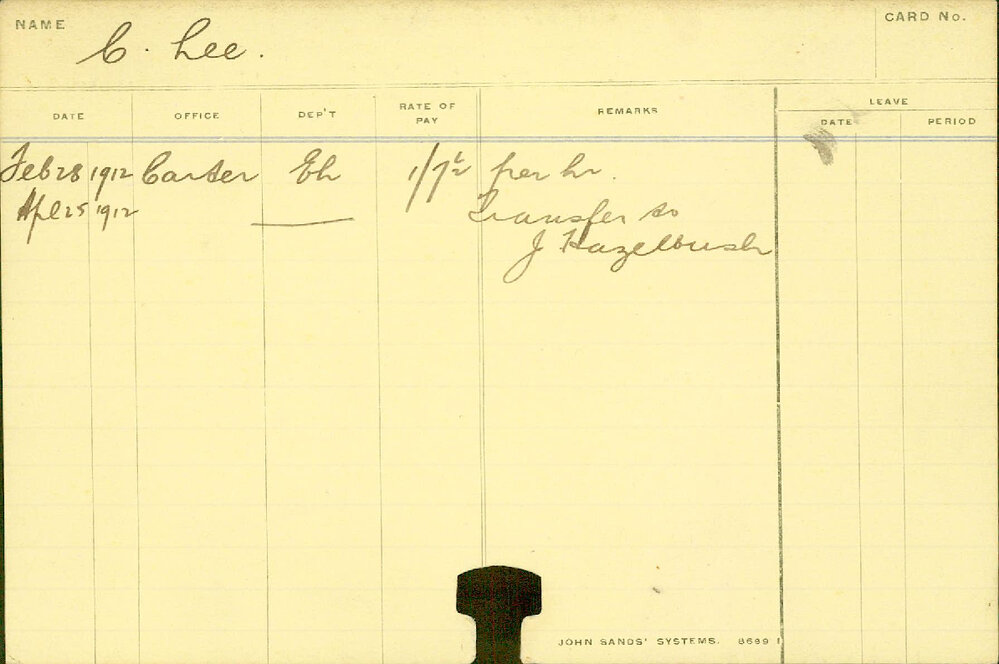 NAME C. Lee.
CARD No.
DATE OFFICE DEP'T RATE OF PAY REMARKS LEAVE
DATE PERIOD
Feb 28 1912 Carter Eh per hr.
Apl 25 1912 Transfer to
J Hazelbush
JOHN SANDS' SYSTEMS. 8689